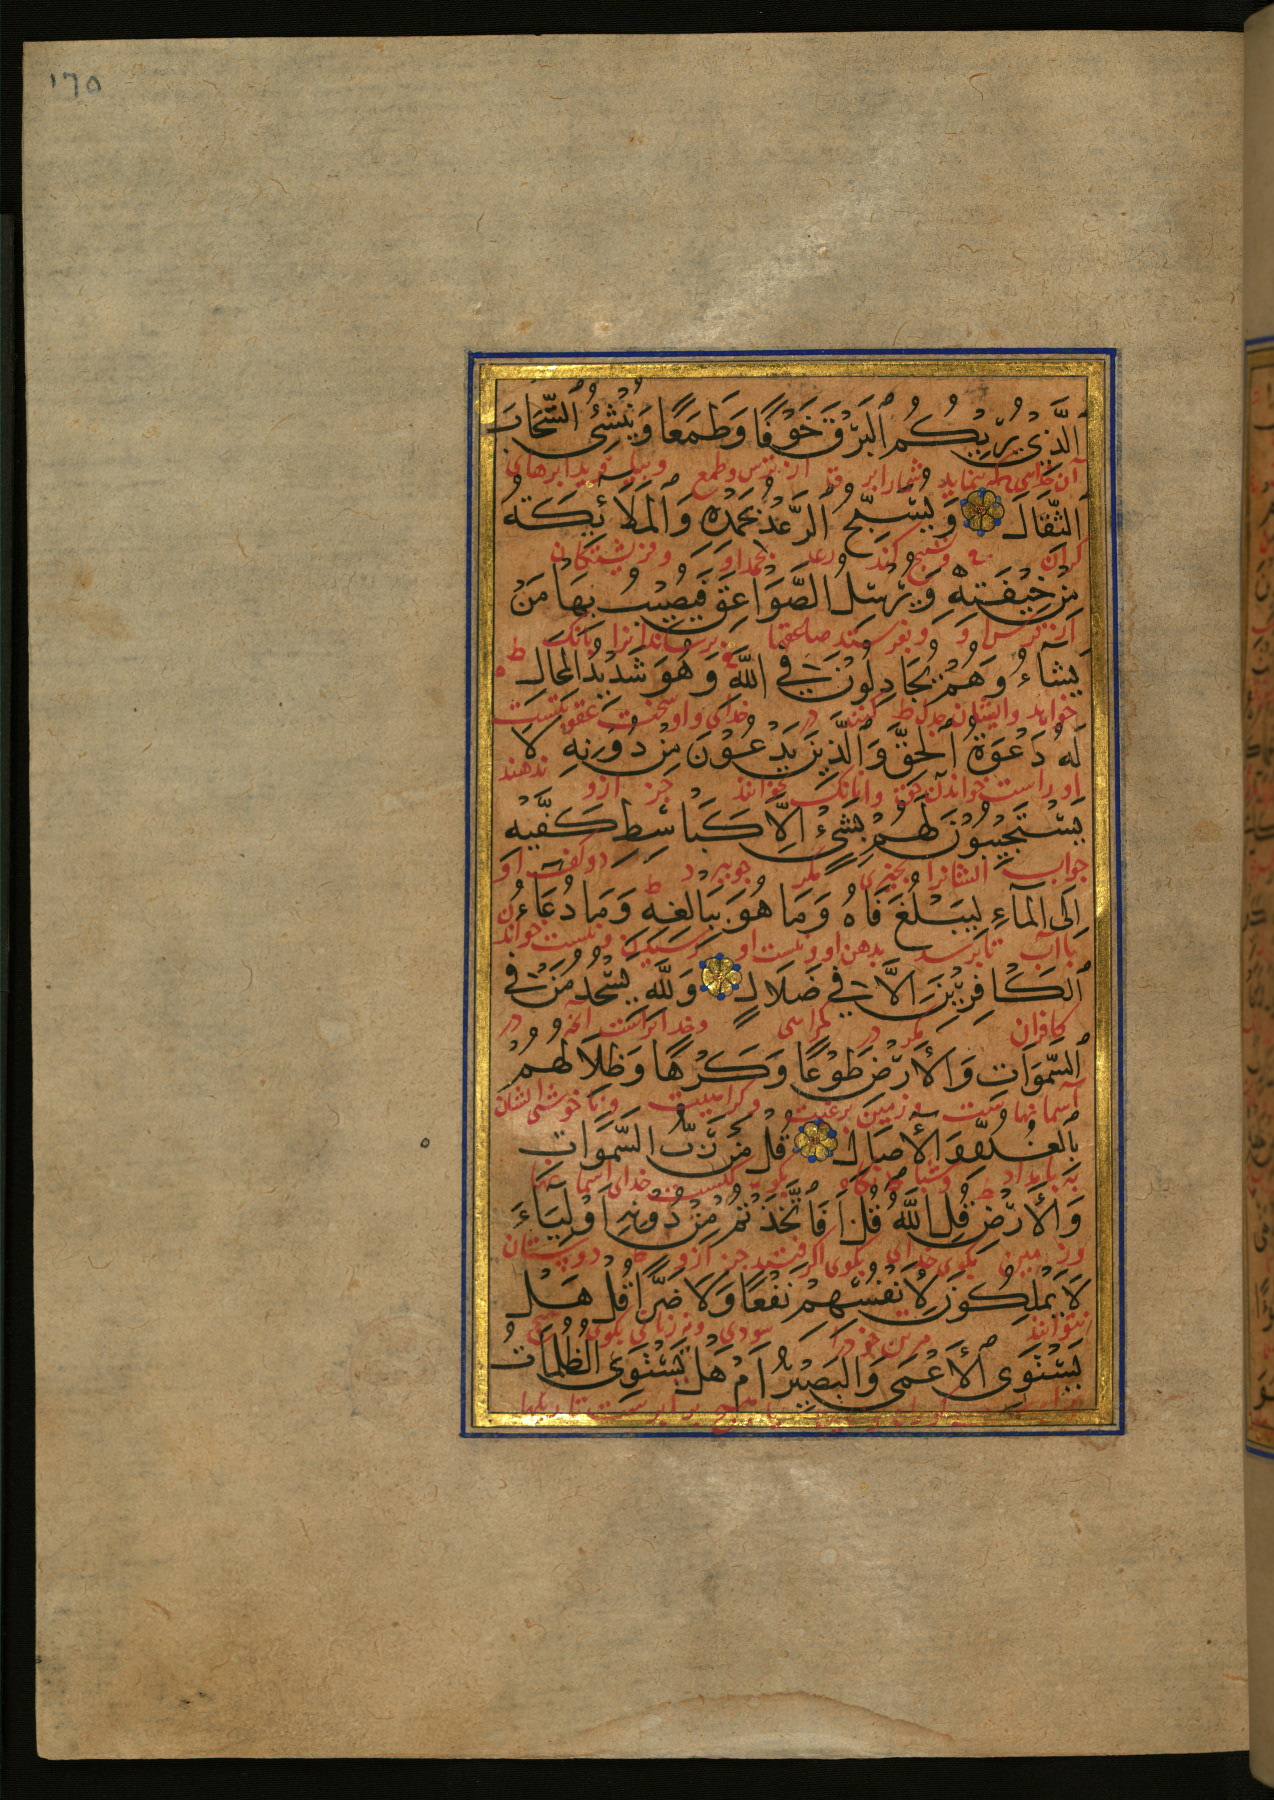 ١٦٥
ٱلَّذِي يُرِيكُمُ ٱلْبَرْقَ خَوْفًا وَطَمَعًا وَيُنْشِئُ ٱلسَّحَابَ
آن خدایی که بنماید شما را برق از ترس و طمع
ٱلثِّقَالَ وَيُسَبِّحُ ٱلرَّعْدُ بِحَمْدِهِ وَٱلْمَلَائِكَةُ
گران و تسبیح کند رعد بحمد او و فرشتگان
مِنْ خِيفَتِهِ وَيُرْسِلُ الصَّوَاعِقَ فَيُصِيبُ بِهَا مَنْ
از ترس او و بفرستد صاعقها
يَشَآءُ وَهُمْ يُجَادِلُونَ فِي اللَّهِ وَهُوَ شَدِيدُ الْمِحَالِ ط
خواهد و ایشان جدل کنند در خدای و او سخت عقوبتست
لَهُ دَعْوَةُ ٱلْحَقِّ وَٱلَّذِينَ يَدْعُونَ مِنْ دُونِهِ لَا
او راست خواندن حق و آنانک بخوانند جز ازو ندهند
يَسْتَجِيبُونَ لَهُمْ بِشَيْءٍ اِلَّا كَبَاسِطِ كَفَّيْهِ
جواب ایشانرا بچیزی مگر دو کف او
اِلَى الْمَآءِ لِيَبْلُغَ فَاهُ وَمَا هُوَ بِبَالِغِهِ وَمَا دُعَآءُ
با آب تا برسد بدهن او و نیست او رسیدن و نیست خواندن
ٱلْكَافِرِينَ اِلَّا فِي ضَلَالٍ وَلِلَّهِ يَسْجُدُ مَنْ فِي
کافران مگر در گمراهی و خدایراست آنچه در
ٱلسَّمٰوَاتِ وَالْأَرْضِ طَوْعًا وَكَرْهًا وَظِلَالُهُمْ
آسمانهاست و زمین برغبت و کراهیت و ناخوشی ایشان
بِٱلْغُدُوِّ وَالْآصَالِ قُلْ مَنْ رَبُّ السَّمٰوَاتِ
به بامداد و شبانگاه بگوی کیست خدای آسمانها
وَالْأَرْضِ قُلِ اللَّهُ قُلْ اَفَاتَّخَذْتُمْ مِنْ دُونِهِ اَوْلِيَآءَ
و زمین بگوی خدای بگوی اگر گرفتید جز ازو دوستان
لَا يَمْلِكُونَ لِأَنْفُسِهِمْ نَفْعًا وَلَا ضَرًّا قُلْ هَلْ
نتوانند مرتن خود را سودی و نه زیانی بگوی هیچ
يَسْتَوِي ٱلْأَعْمَى وَالْبَصِيرُ اَمْ هَلْ يَسْتَوِي الظُّلُمَاتُ
برابرست تاریکیها